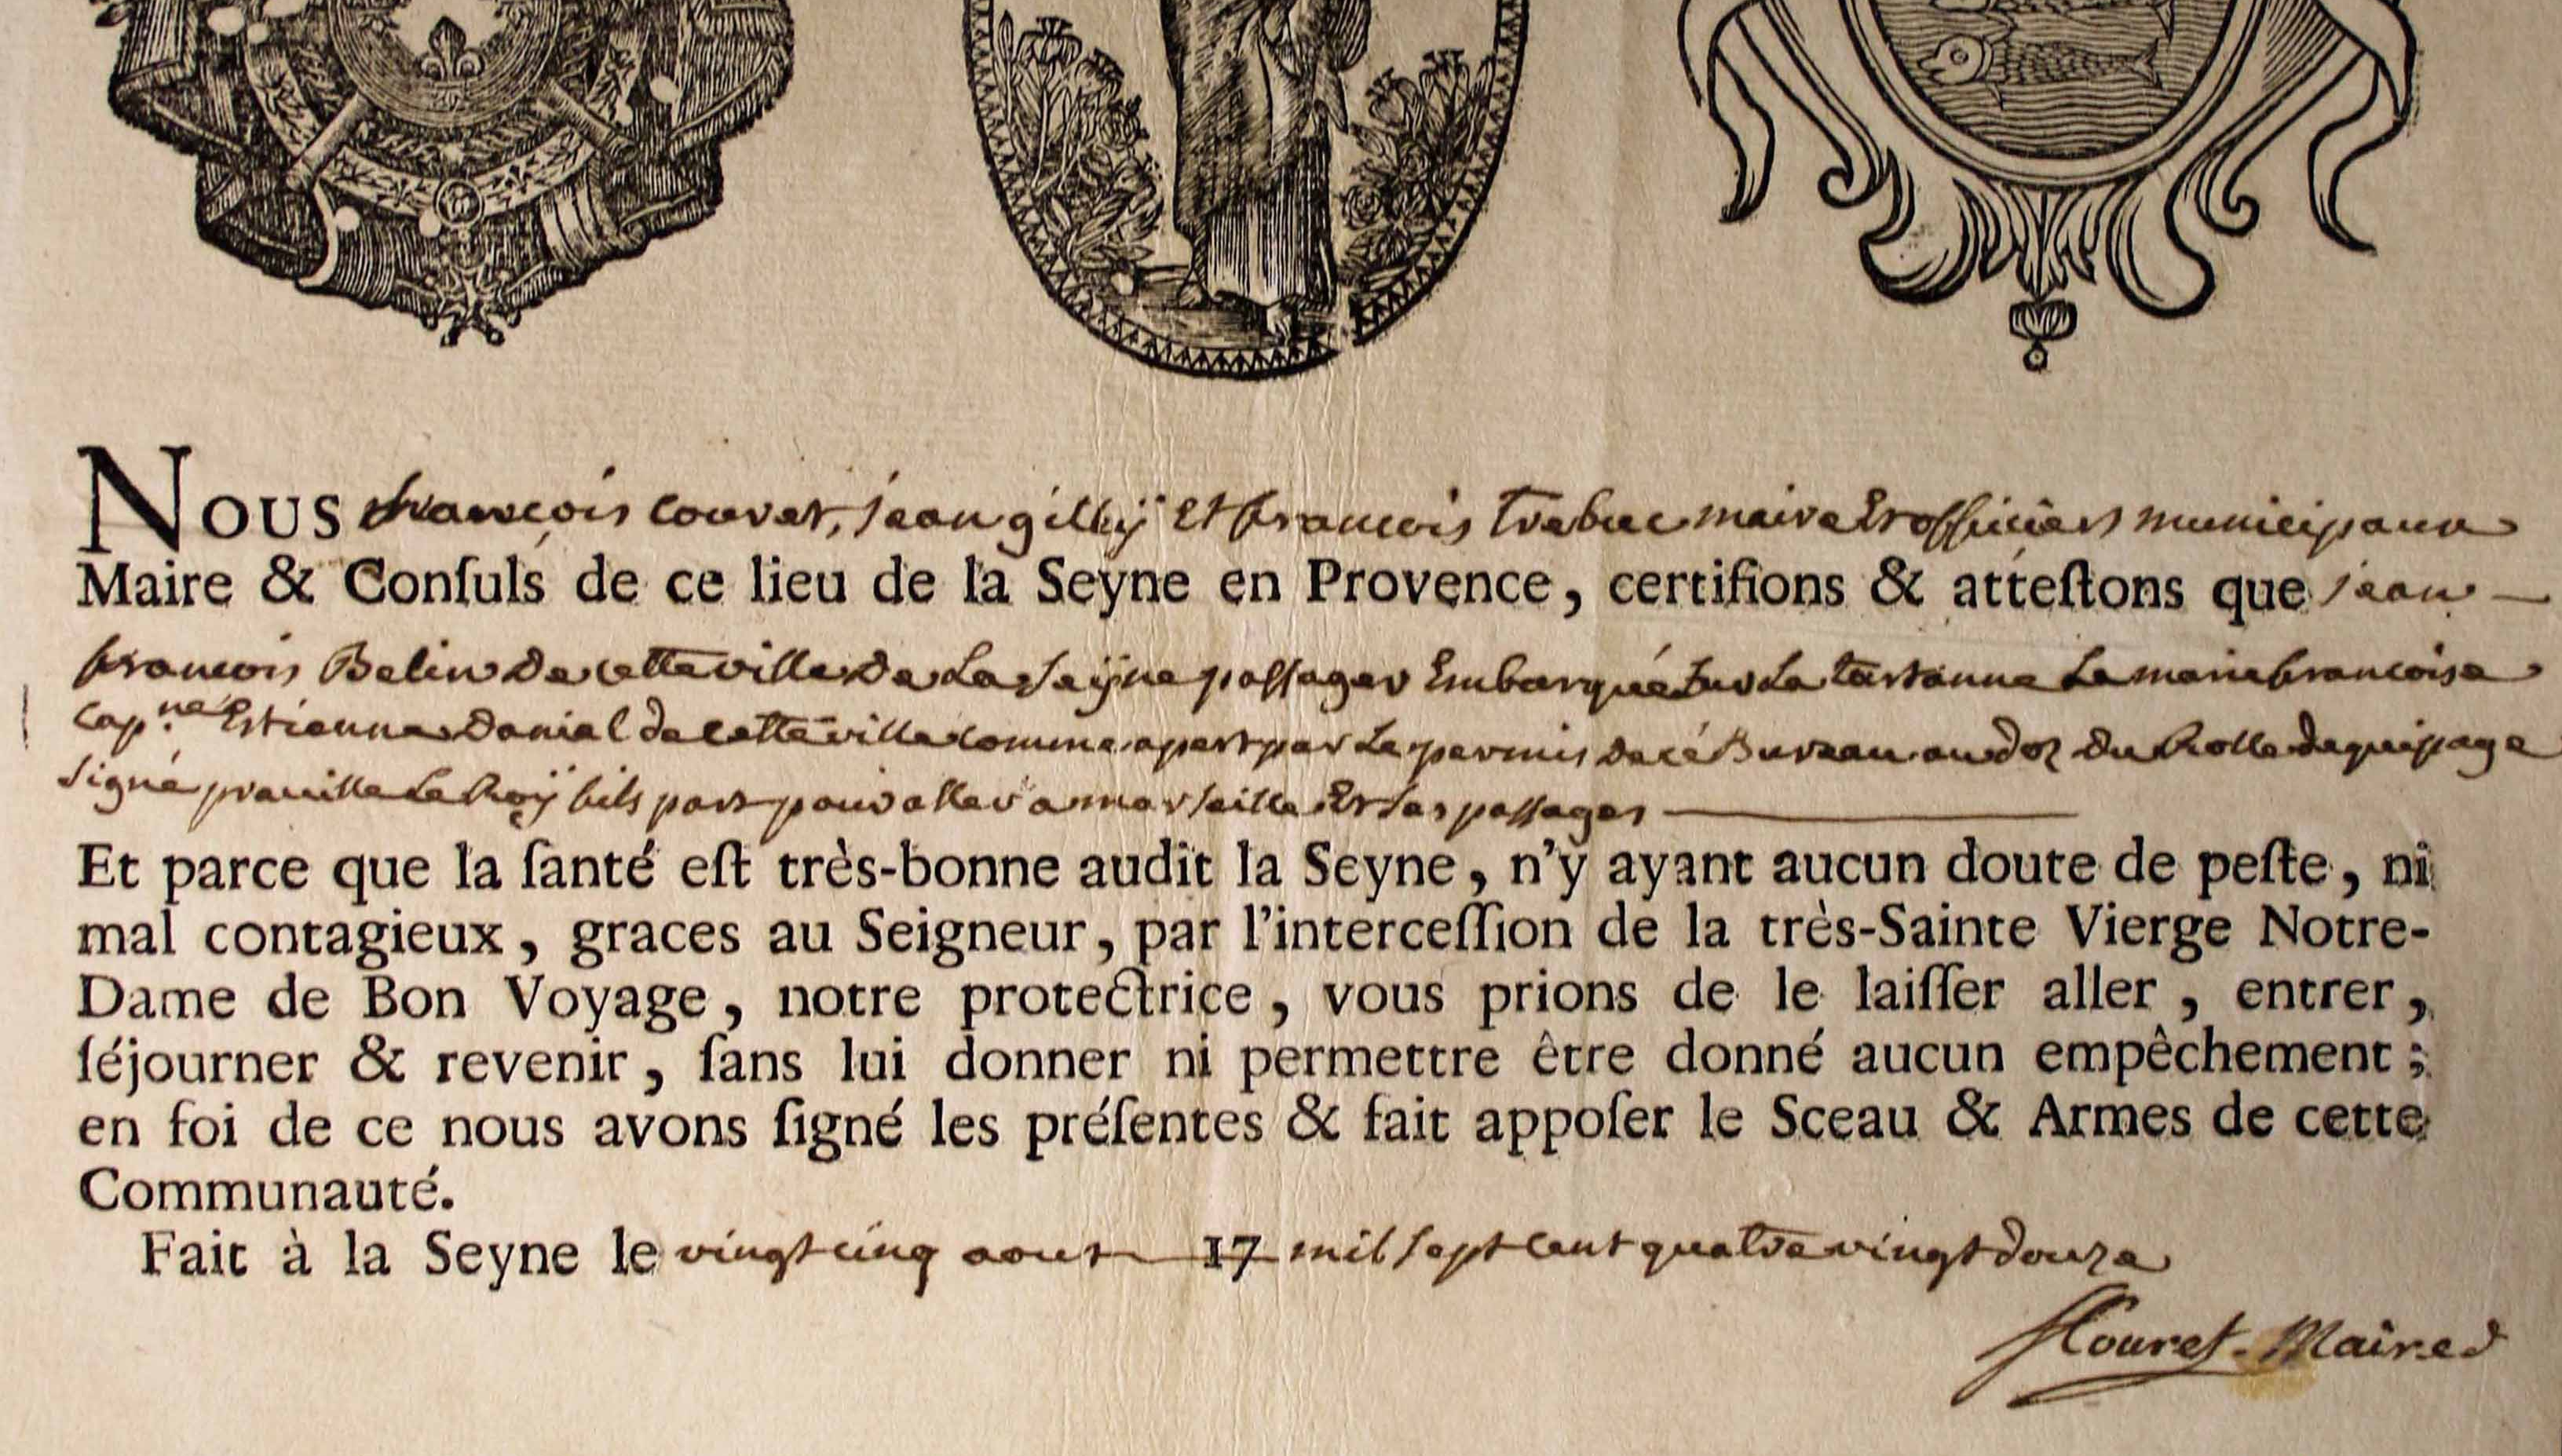 Nous françois couret, jean gilly et françois trabuc maire Et officiers municipaux
Maire & Conſuls de ce lieu de la Seyne en Provence, certifions & atteſtons que jean
françois Belin de cette ville de La Seÿne passager Embarqué sur La tartanne La marie francoise
Cap.ne Estienne Daniel de cette ville comme apert par Le permis de cé Bureau au doz du Rolle dequipage
Signé Le Roÿ fils part pour aller a marseille Et ses passages
Et parce que la ſanté eſt très-bonne audit la Seyne, n'y ayant aucun doute de peſte, ni
mal contagieux, graces au Seigneur, par l'interceſſion de la très-Sainte Vierge Notre-
Dame de Bon Voyage, notre protectrice, vous prions de le laiſſer aller, entrer,
ſéjourner & revenir, ſans lui donner ni permettre être donné aucun empêchement;
en foi de ce nous avons ſigné les préſentes & fait appoſer le Sceau & Armes de cette
Communauté.
Fait à la Seyne le vingt cinq aout 17 mil sept cent quatre vingt douze
Couret Maire